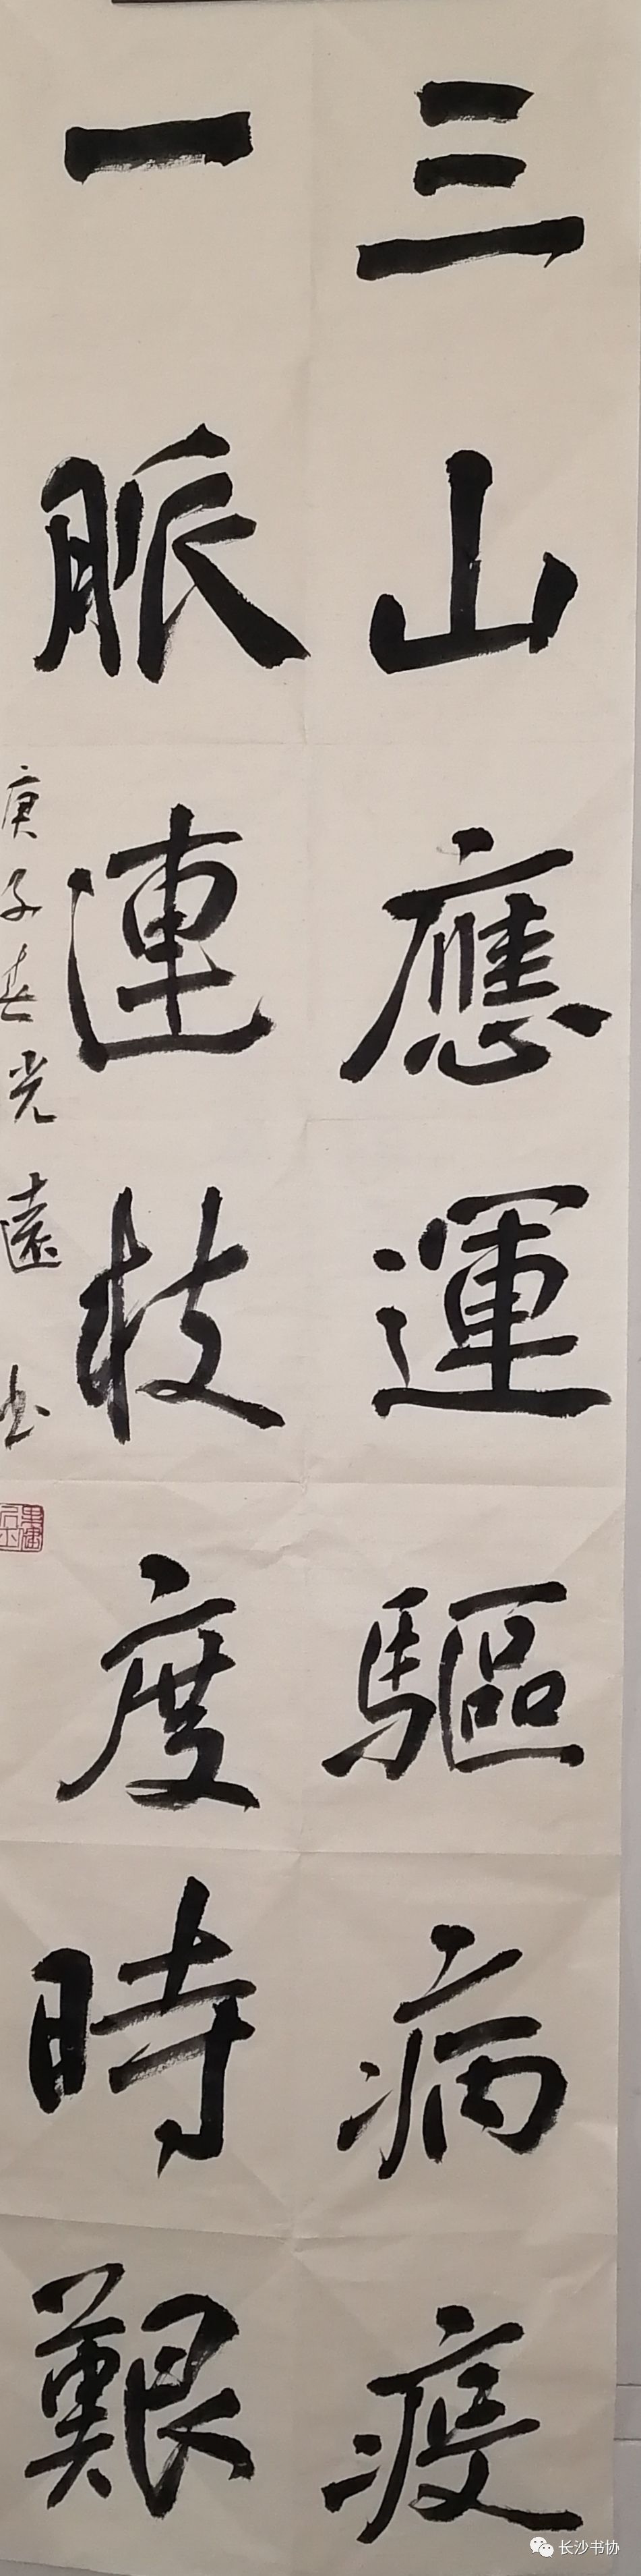 三山應運驅病疫
一脈連枝度時艱
庚子春光遠书
长沙书协